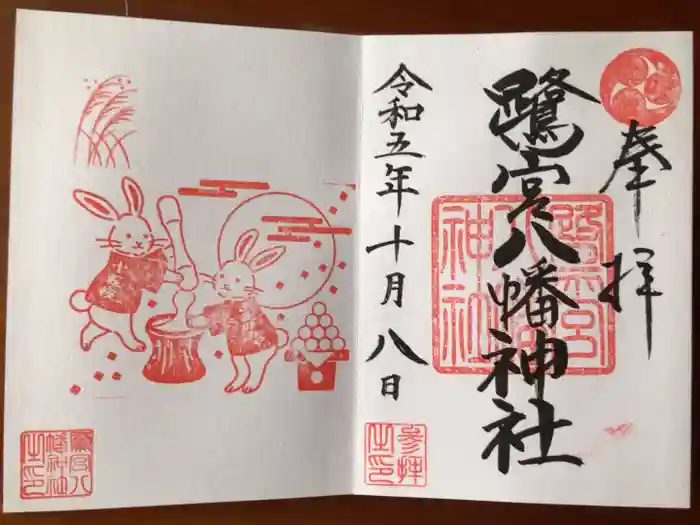 奉拝
鷺宮八幡神社
令和五年十月八日
鷺宮八幡神社
参拝之印
鷺宮八幡神社之印